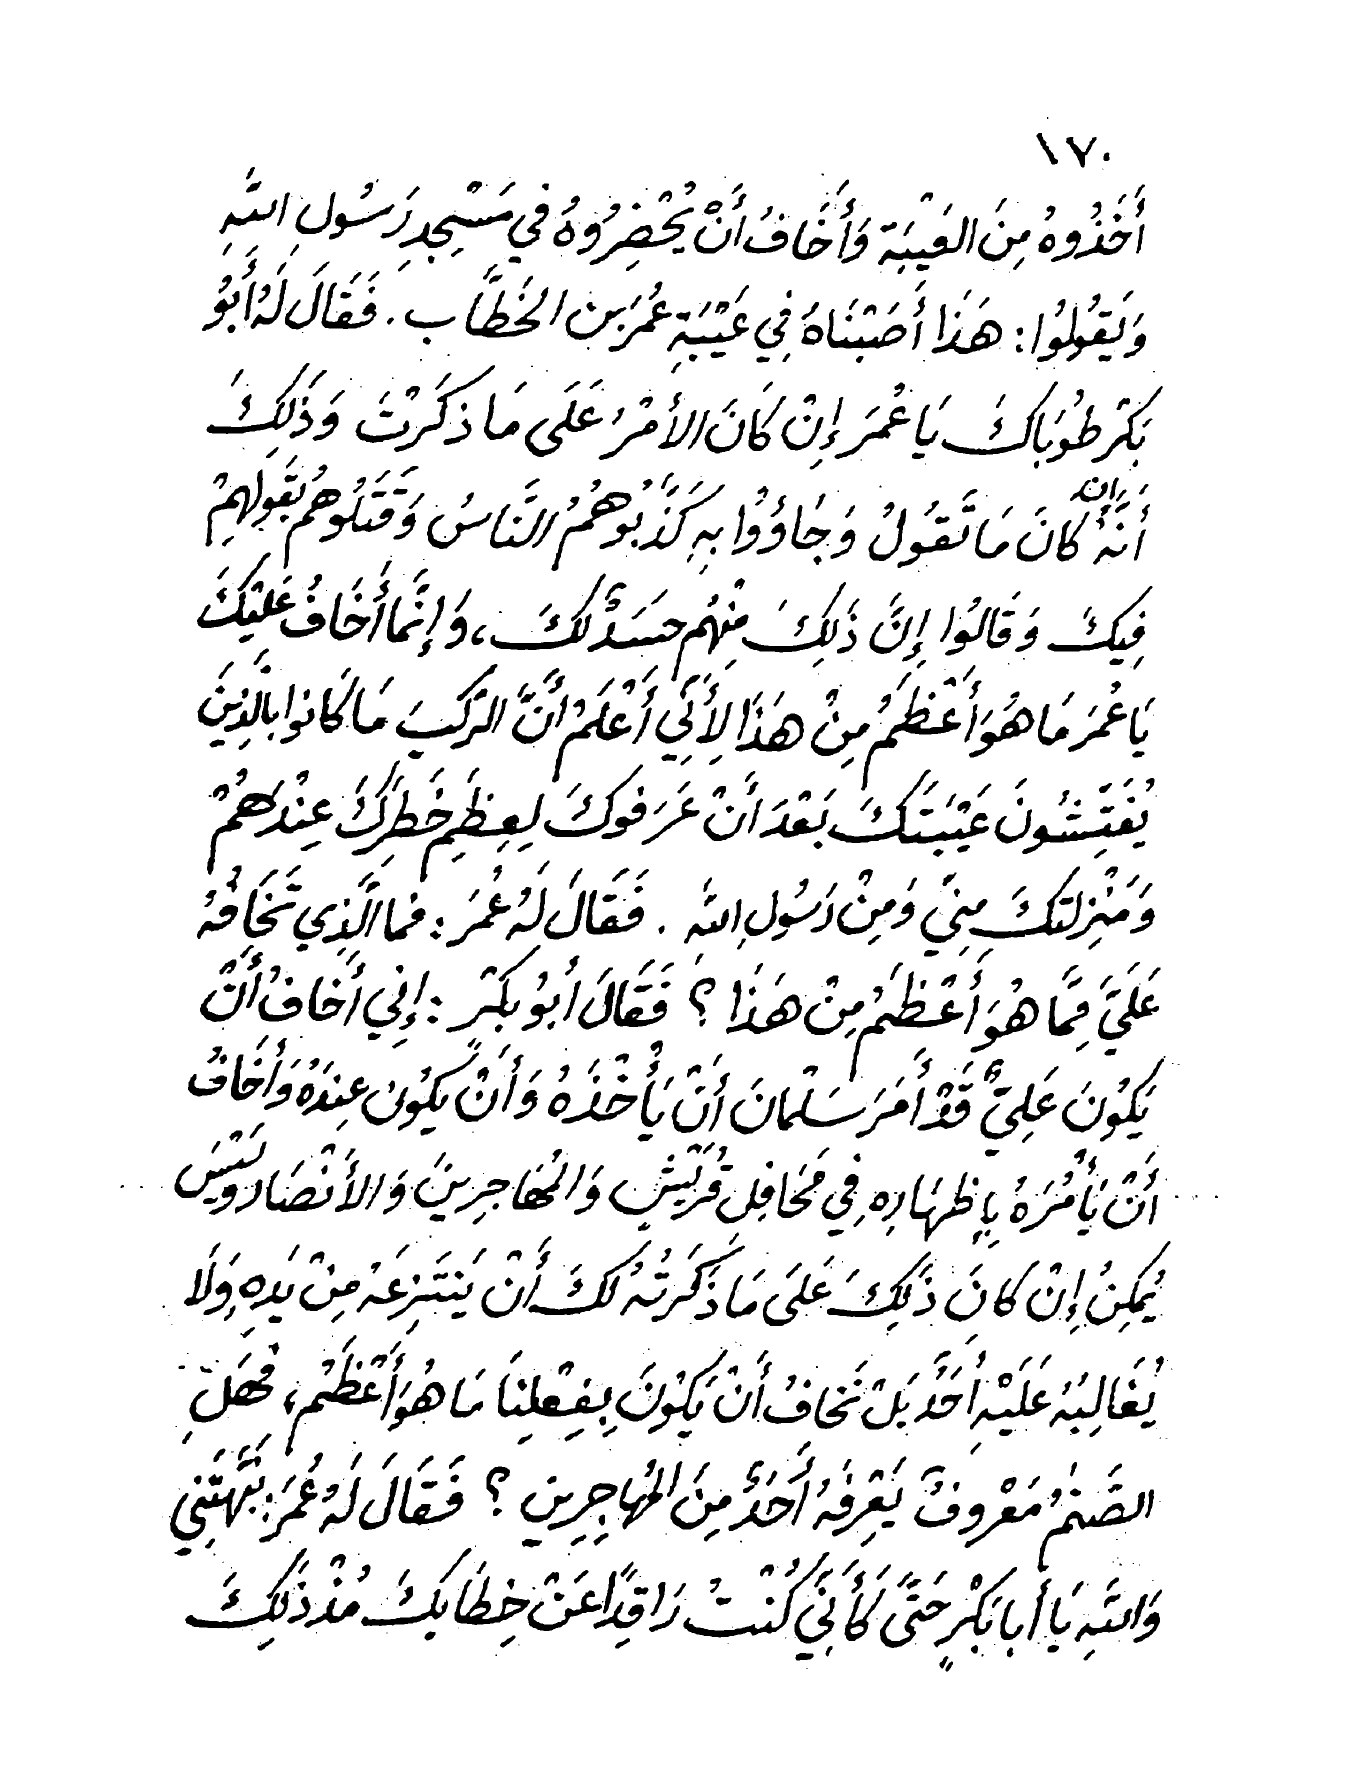 ١٧٠
أَخَذُوهُ مِنَ العَيْبَة وَأَخَافُ أَنْ يُحْضِرُوهُ في مَسْجِدِ رَسُولِ اللَّهِ
وَيَقُولُوا: هَذَا أَصَبْنَاهُ فِي عَيْبَةِ عُمَرَ بن الخَطَّاب. فَقَالَ لَهُ أَبُو
بَكْر طُوبَاكَ يَا عُمَرَ إِنْ كَانَ الأَمْرُ عَلَى مَا ذكَرْتَ وَذَلِكَ
أَنَّهُ إن كَانَ مَا تَقُولُ وَجَاؤُوا بِهِ كَذَّبُوهُمُ النَّاسُ وَقَتَلُوهُم بِقَوْلِهِمْ
فِيكَ وَقَالُوا إِنَّ ذَلِكَ مِنْهُم حَسَدٌ لَكَ، وَإِنَّمَا أَخَافُ عَلَيْكَ
يَا عُمَرَ مَا هُوَ أَعْظَمُ مِنْ هَذَا لِأَنِّي أَعْلَمُ أَنَّ الرَّكْبَ مَا كَانوا بالَّذِينَ
يُفَتِّشُونَ عَيْبَتَكَ بَعْدَ أَنْ عَرَفوكَ لِعِظَمِ خَطَرِكَ عِنْدَهُمْ
وَمَنْزِلَتكَ مِنِّي وَمِنْ رَسُولِ اللَّهِ . فَقَالَ لَهُ عُمَرَ: فما الَّذِي تَخَافُهُ
عَلَيَّ مِمَّا هُوَ أَعْظَمُ مِنْ هَذَا؟ فَقَالَ أَبُو بكْرٍ: إِنِّي أَخَافُ أَنْ
يَكُونَ عَلِيٌّ قَدْ أَمَرَ سَلْمَانَ أَنْ يَأْخُذَهُ وَأَنْ يَكُونَ عِندَهُ وَأَخَافُ
أَنْ يَأْمُرَهُ بِإِظهَارِهِ فِي مَحَافِلِ قُرَيْشٍ وَالمُهَاجِرِينَ وَالأَنْصَارِ وَلَيْسَ
يُمْكِنُ إِنْ كَانَ ذَلِكَ عَلَى مَا ذَكَرْتُهُ لَكَ أَنْ يَنتَزِعَهُ مِنْ يَدِهِ وَلَا
يُغَالِبُهُ عَلَيْهِ أَحَدٌ بَلْ نَخَافُ أَنْ يَكُونَ بِفِعْلِنَا مَا هُوَ أَعْظَمُ، فَهَلِ
الصَّنَمُ مَعْرُوفٌ يَعْرِفُهُ أَحَدٌ مِنَ المُهَاجِرِينِ؟ فَقَالَ لَهُ عُمَرَ: نَبَّهتَنِي
وَاللَّهِ يَا أَبا بَكْرٍ حَتَّى كَأَنِّي كُنْتُ رَاقِدًا عَنْ خِطَابِكَ مُنْذُ ذَلِكَ